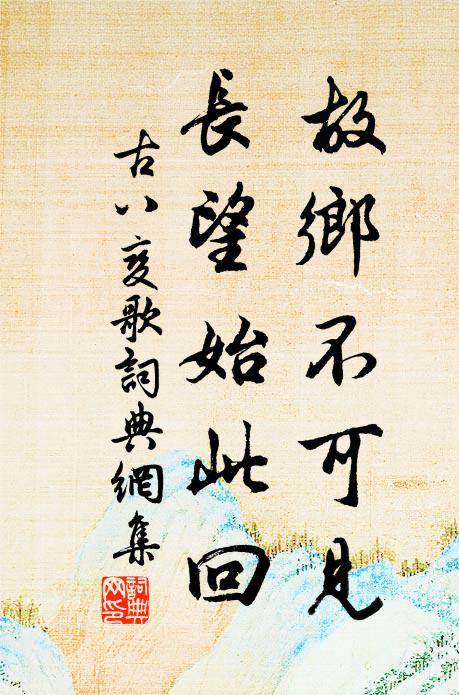 故鄉不可見
長望始此回
古八變歌詞典網集
詞典